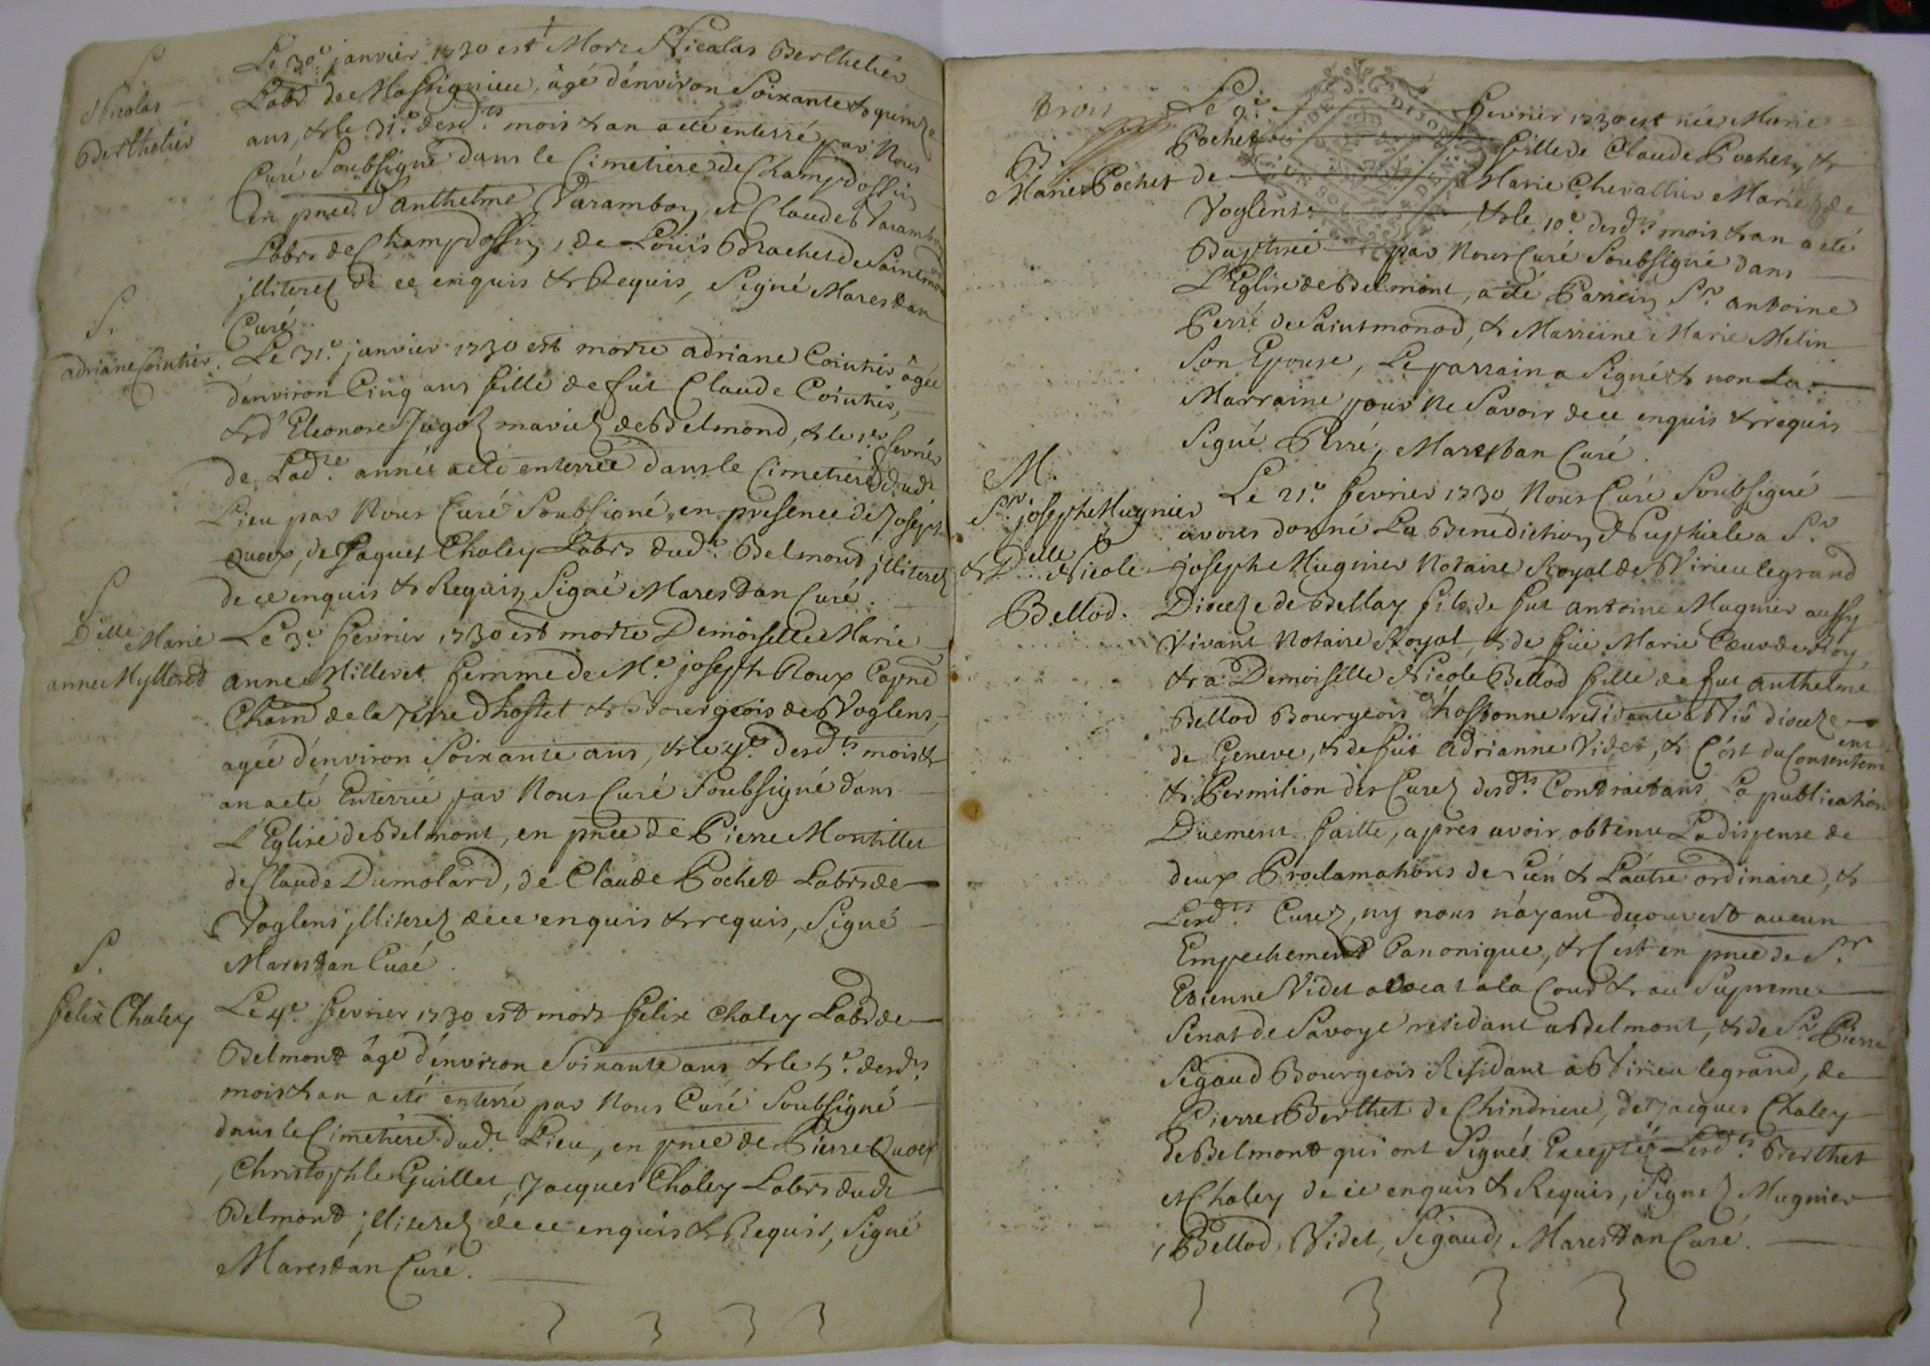 S.
Nicolas
Berthelier
Le 30e. janvier 1730 est Mort Nicolas Berthelier
Labr de Massignieu, âgé d'énviron Soixante & quinze
ans, & le 31e. desdts mois & an a eté enterré par Nous
Curé Soubsigné dans le Cimetiere de Champdossin
en pnce d'Anthelme Varambon, et Claude Varambon
Labrs de Champdossin, de Loüis Brachet de Saintmonod
jlliterez de ce enquis & Requis, Signé Marestan
Curé.
S.
adriane Cointier.
Le 31e. janvier 1730 est morte adriane Cointier âgée
d'énviron Cinq ans fille de fût Claude Cointier,
& d'Eleonore Jugoz mariez de Belmond, & le 1er fevrier
de Ladte. année a eté enterrée dans le Cimetiere dudt.
Lieu par Nous Curé Soubsigné, en presence de Joseph
Quoex, de Jaques Chaley Labrs dudt. Belmond jlliterez
de ce enquis & Requis, Signé Marestan Curé.
S.
Delle Marie
anne Mylleret
Le 3e. fevrier 1730 est morte Demoiselle Marie
anne Milleret femme de Me. joseph Roux Capne
Cham de la Terre dhostel & Bourgeois de Voglens,
agée d'énviron Soixante ans, & le 4e. desdts mois &
an a eté Enterrée par Nous Curé Soubsigné dans
L'Eglise de Belmont, en pnce de Pierre Montillet
de Claude Dumolard, de Claude Pochet Labrs de
Voglens jlliterez de ce enquis & requis, Signé
Marestan Curé.
S.
felix Chaley
Le 4e. fevrier 1730 est mort felix Chaley Labr de
Belmont âgé d'énviron Soixante ans & le 5e. desdts
mois & an a eté enterré par Nous Curé Soubsigné
dans le Cimetiere dudt. Lieu, en pnce de Pierre Quoex
, Christophle Guillet, Jacques Chaley Labrs dudt
Belmont jlliterez de ce enquis & Requis, Signé
Marestan Curé.
trois
B.
Marie Pochet
Le 9e. fevrier 1730 est née Marie
Pochet fille de Claude Pochet, &
de Marie Chevallier Mariez de
Voglens & le 10e. desdts mois & an a eté
Baptisée par Nous Curé Soubsigné dans
L'Eglise de Belmont, a eté Parrain Sr. antoine
Perré de Saintmonod, & Marreine Marie Melin
Son Epouse, Le parrain a Signé & non La
Marraine pour Ne Savoir de ce enquis & requis
Signé Perré, Marestan Curé.
M.
Sr. joseph Mugnier
& Delle Nicole
Bellod.
Le 21e. fevrier 1730 Nous Curé Soubsigné
avons donné La Benediction Nuptiale a Sr
joseph Mugnier Notaire Royal de Virieu legrand
Diocese de Bellay fils de fut Antoine Mugnier aussy
Vivant Notaire Royal, & de füe Marie Coeurderoy,
& a Demoiselle Nicole Bellod fille de fut Anthelme
Bellod Bourgeois d'hostonne residante a diocese
de Geneve, & de füe Adrianne Videt, & C'ést du Consentement
& Permition des Curez desdts. Contractans La publication
Düement faitte, apres avoir obtenu La dispense de
deux Proclamations de L'ún & L'aûtre ordinaire, &
Lesdts. Curez, ny nous n'ayant decouvert aucun
Empechement Canonique, & C'est en pnce de Sr
Etienne Videt avocat a la Cour & au Supreme
Senat de Savoye residant a Belmont, & de Sr. Pierre
Segaud Bourgeois Residant a Virieu legrand, de
Pierre Berthet de Chindrieu, de Jacques Chaley
de Belmont qui ont Signés Exceptéz Lesdts Berthet
et Chaley de ce enquis & Requis, Signez Mugnier
, Bellod, Videt, Segaud, Marestan Curé.